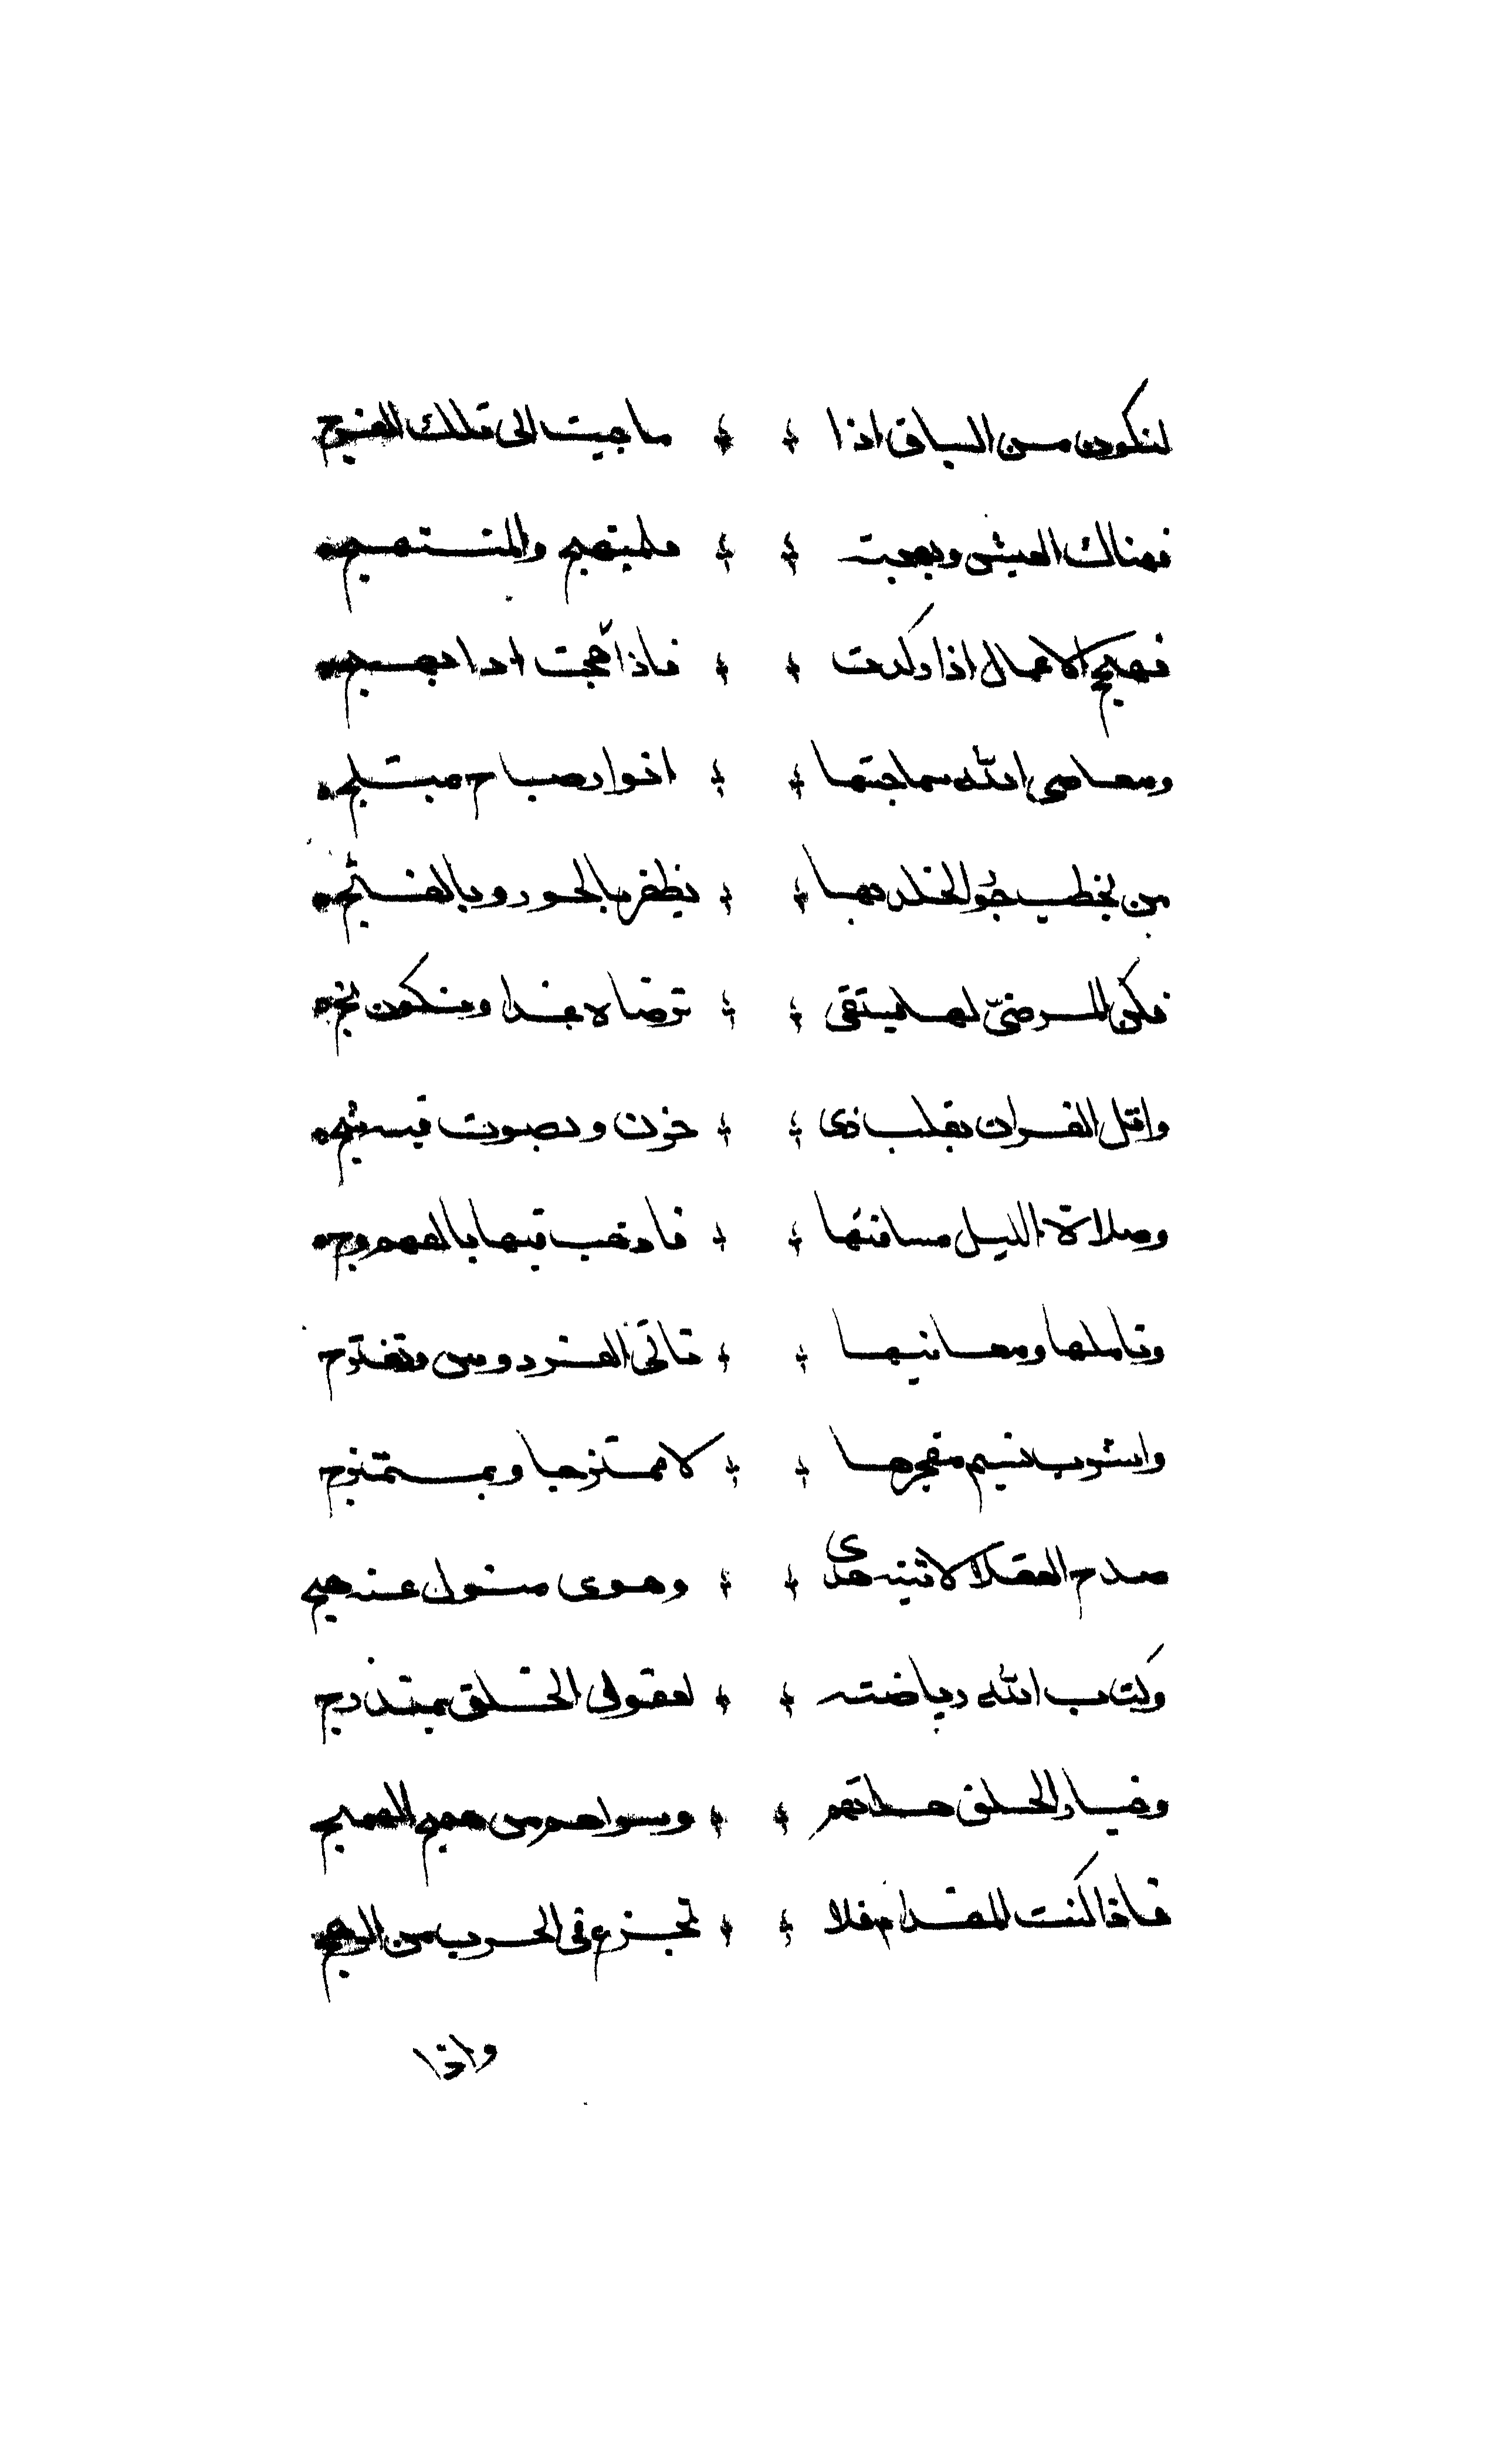 لتكون من السباق اذا ما جيت الى تلك الفرج
فهناك العيش وبهجته فلمبتهج والمنتهج
فهج الاعمال اذا ركدت فاذا هجت اذا بهج
ومعاصى الله سماجتها انوار صباح مبتلج
من يخطب حور الخلد بها يظفر بالحور وبالغنج
فكن المرضىّ لها بتقى ترضاه غدا وتكون نج
واتل القران بقلب ذى حزن وبصوت فيه شج
وصلاة الليل مسافتها فاذهب فيها بالفهم وج
وتاملها ومعانيها تاتى الفردوس وتفترج
واشرب تسنيم مفجرها لا ممتزجا وبممتزج
مدح العقل الاتيه هدى وهوى متول عنه هج
وكتاب الله رياضته لعقول الخلق بمندرج
وخيار الخلق هداتهم وسواهم من همج الهمج
فاذا كنت المقدام فلا تجزع فى الحرب من الرهج
واذا